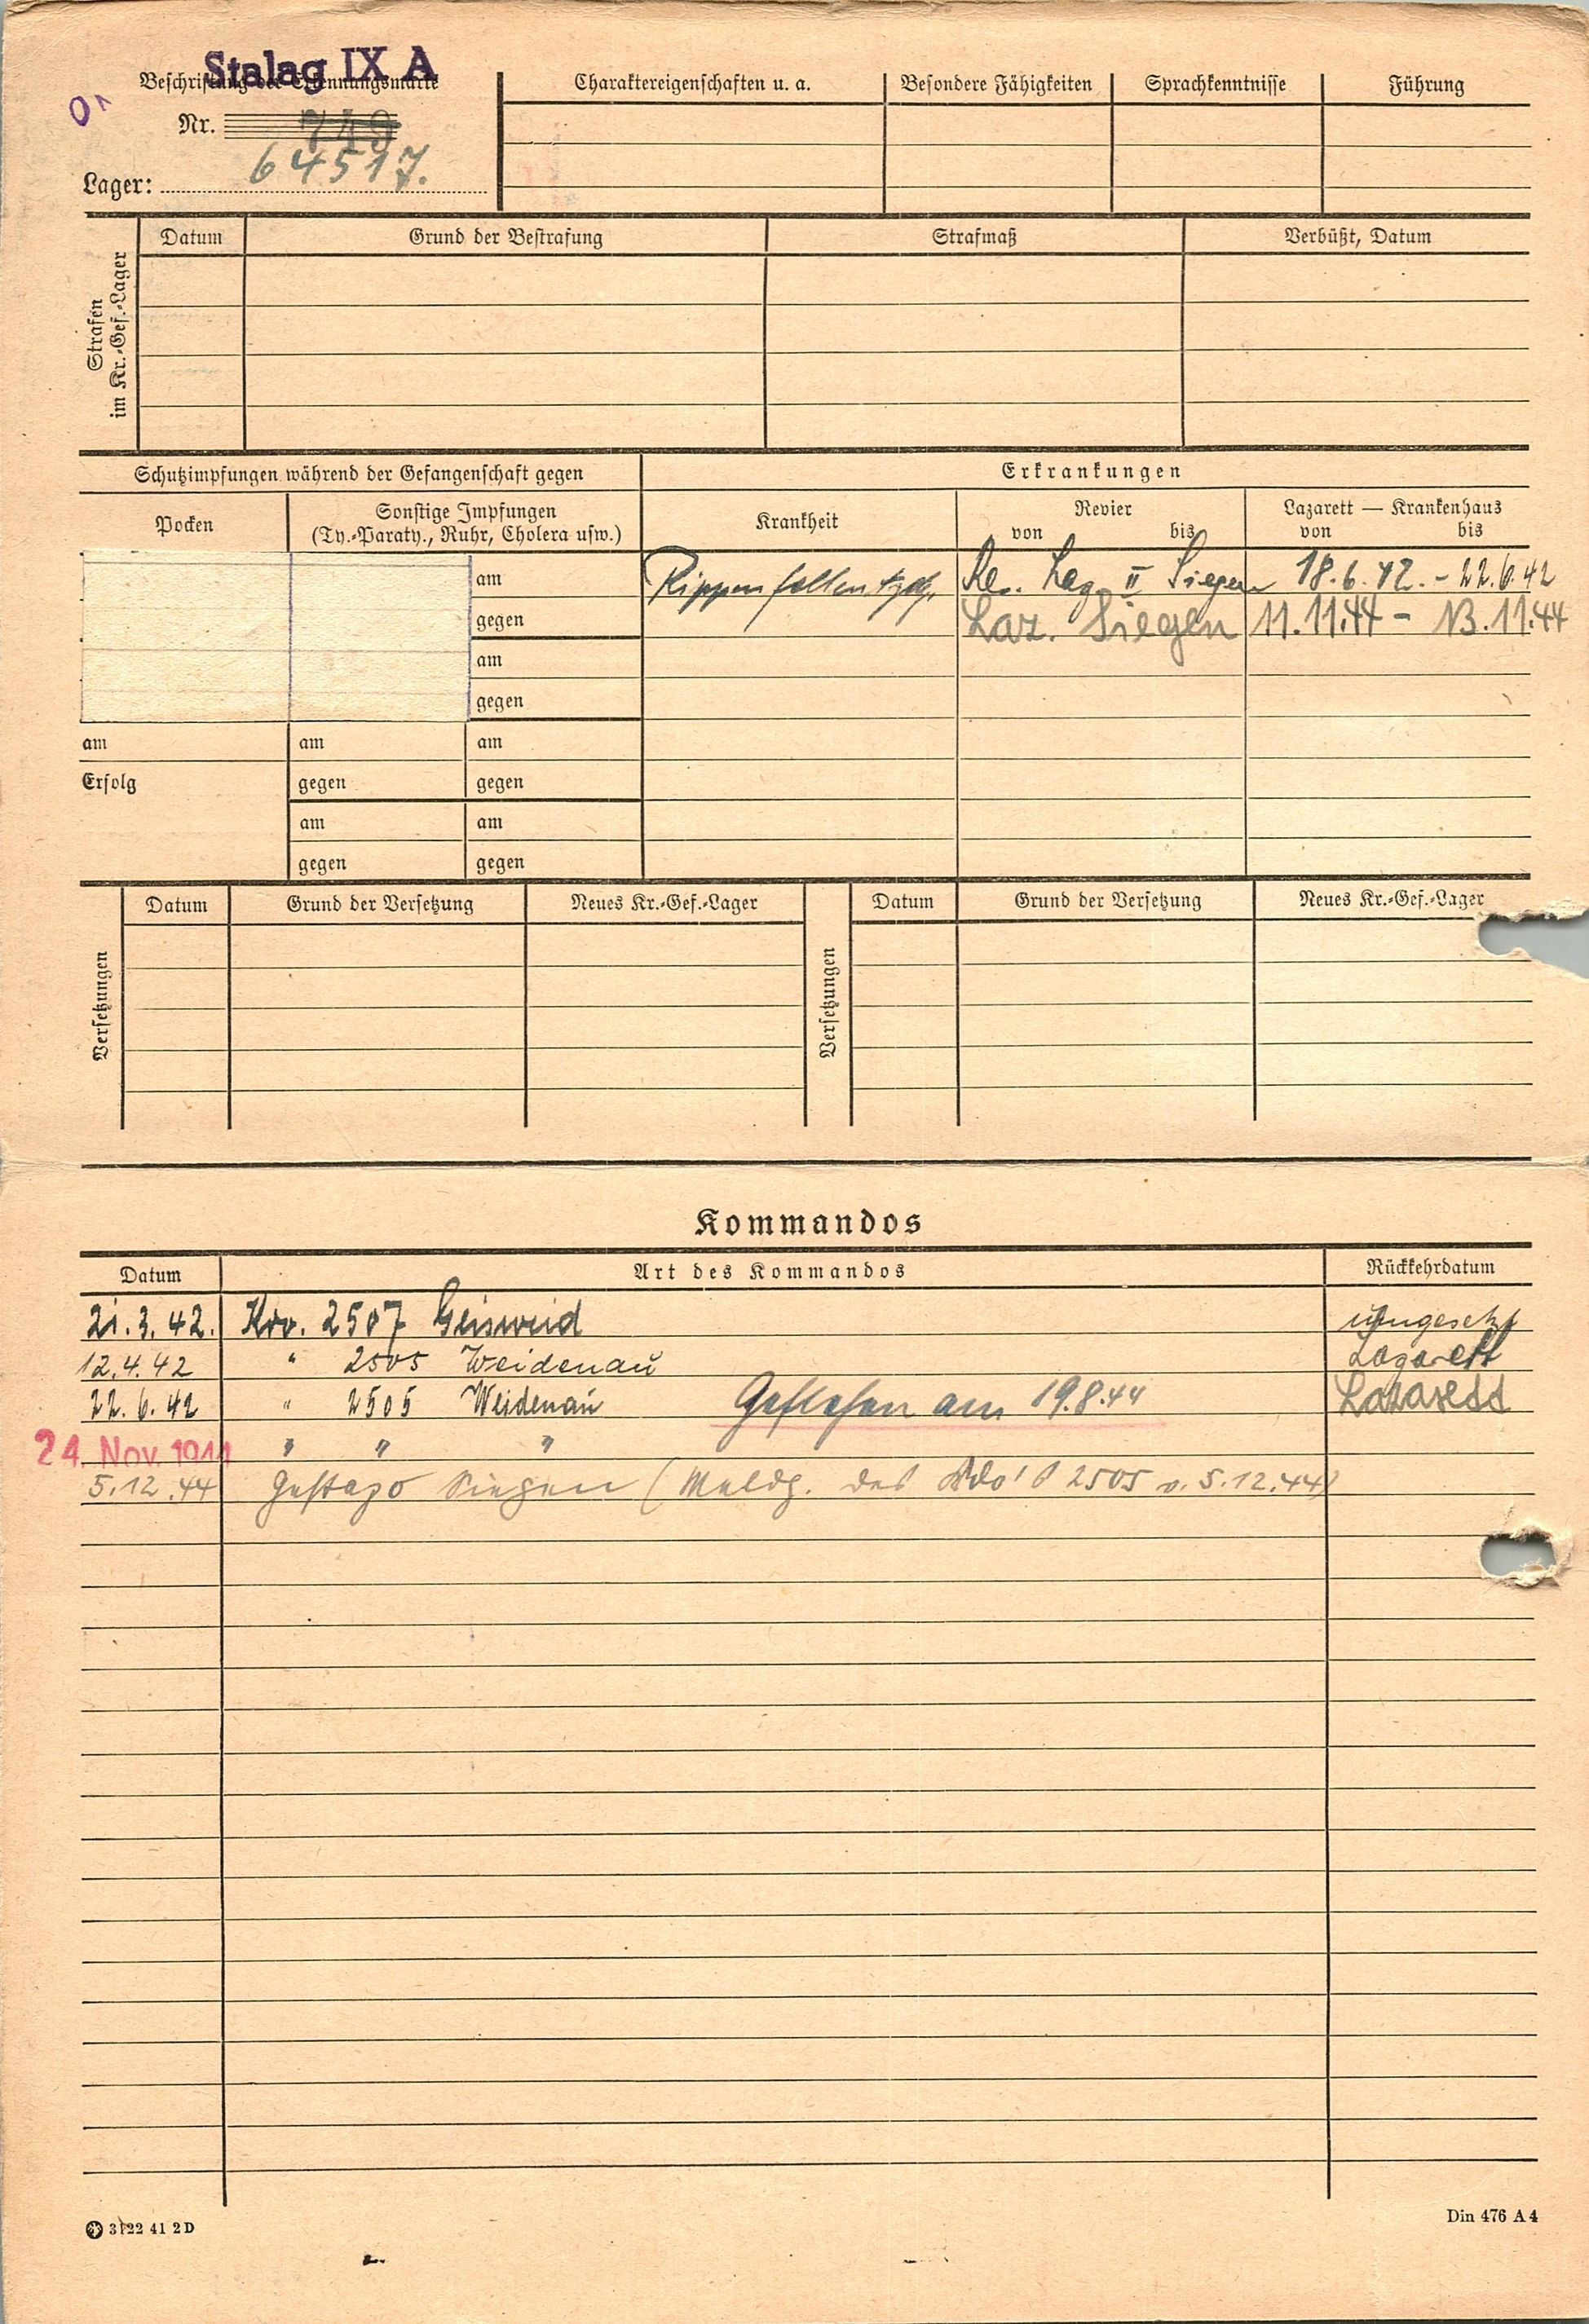 Stalag IX A
Beschriftung der Erkennungsmarke
Nr. 749
64517.
Lager:
Charaktereigenschaften u. a.
Besondere Fähigkeiten
Sprachkenntnisse
Führung
Strafen
im Kr.-Gef.-Lager
Datum
Grund der Bestrafung
Strafmaß
Verbüßt, Datum
Schutzimpfungen während der Gefangenschaft gegen
Erkrankungen
Pocken
Sonstige Impfungen
(Ty.-Paraty., Ruhr, Cholera usw.)
Krankheit
Revier
von bis
Lazarett — Krankenhaus
von bis
am
gegen
am
gegen
Rippenfellentzdg. Res. Laz. II Siegen 18.6.42. - 22.6.42
Laz. Siegen 11.11.44 - 13.11.44
am am am
Erfolg gegen gegen
am am
gegen gegen
Versetzungen
Datum
Grund der Versetzung
Neues Kr.-Gef.-Lager
Versetzungen
Datum
Grund der Versetzung
Neues Kr.-Gef.-Lager
Kommandos
Datum
Art des Kommandos
Rückkehrdatum
21.3.42. Kdo. 2507 Geisweid umgesetzt
12.4.42 " 2505 Weidenau Lazarett
22.6.42 " 2505 Weidenau Geflohen am 19.8.44 Lazarett
24. Nov. 1944 " " "
5.12.44 Gestapo Siegen (Meldg. des Kdo's 2505 v. 5.12.44)
3122 41 2D
Din 476 A4